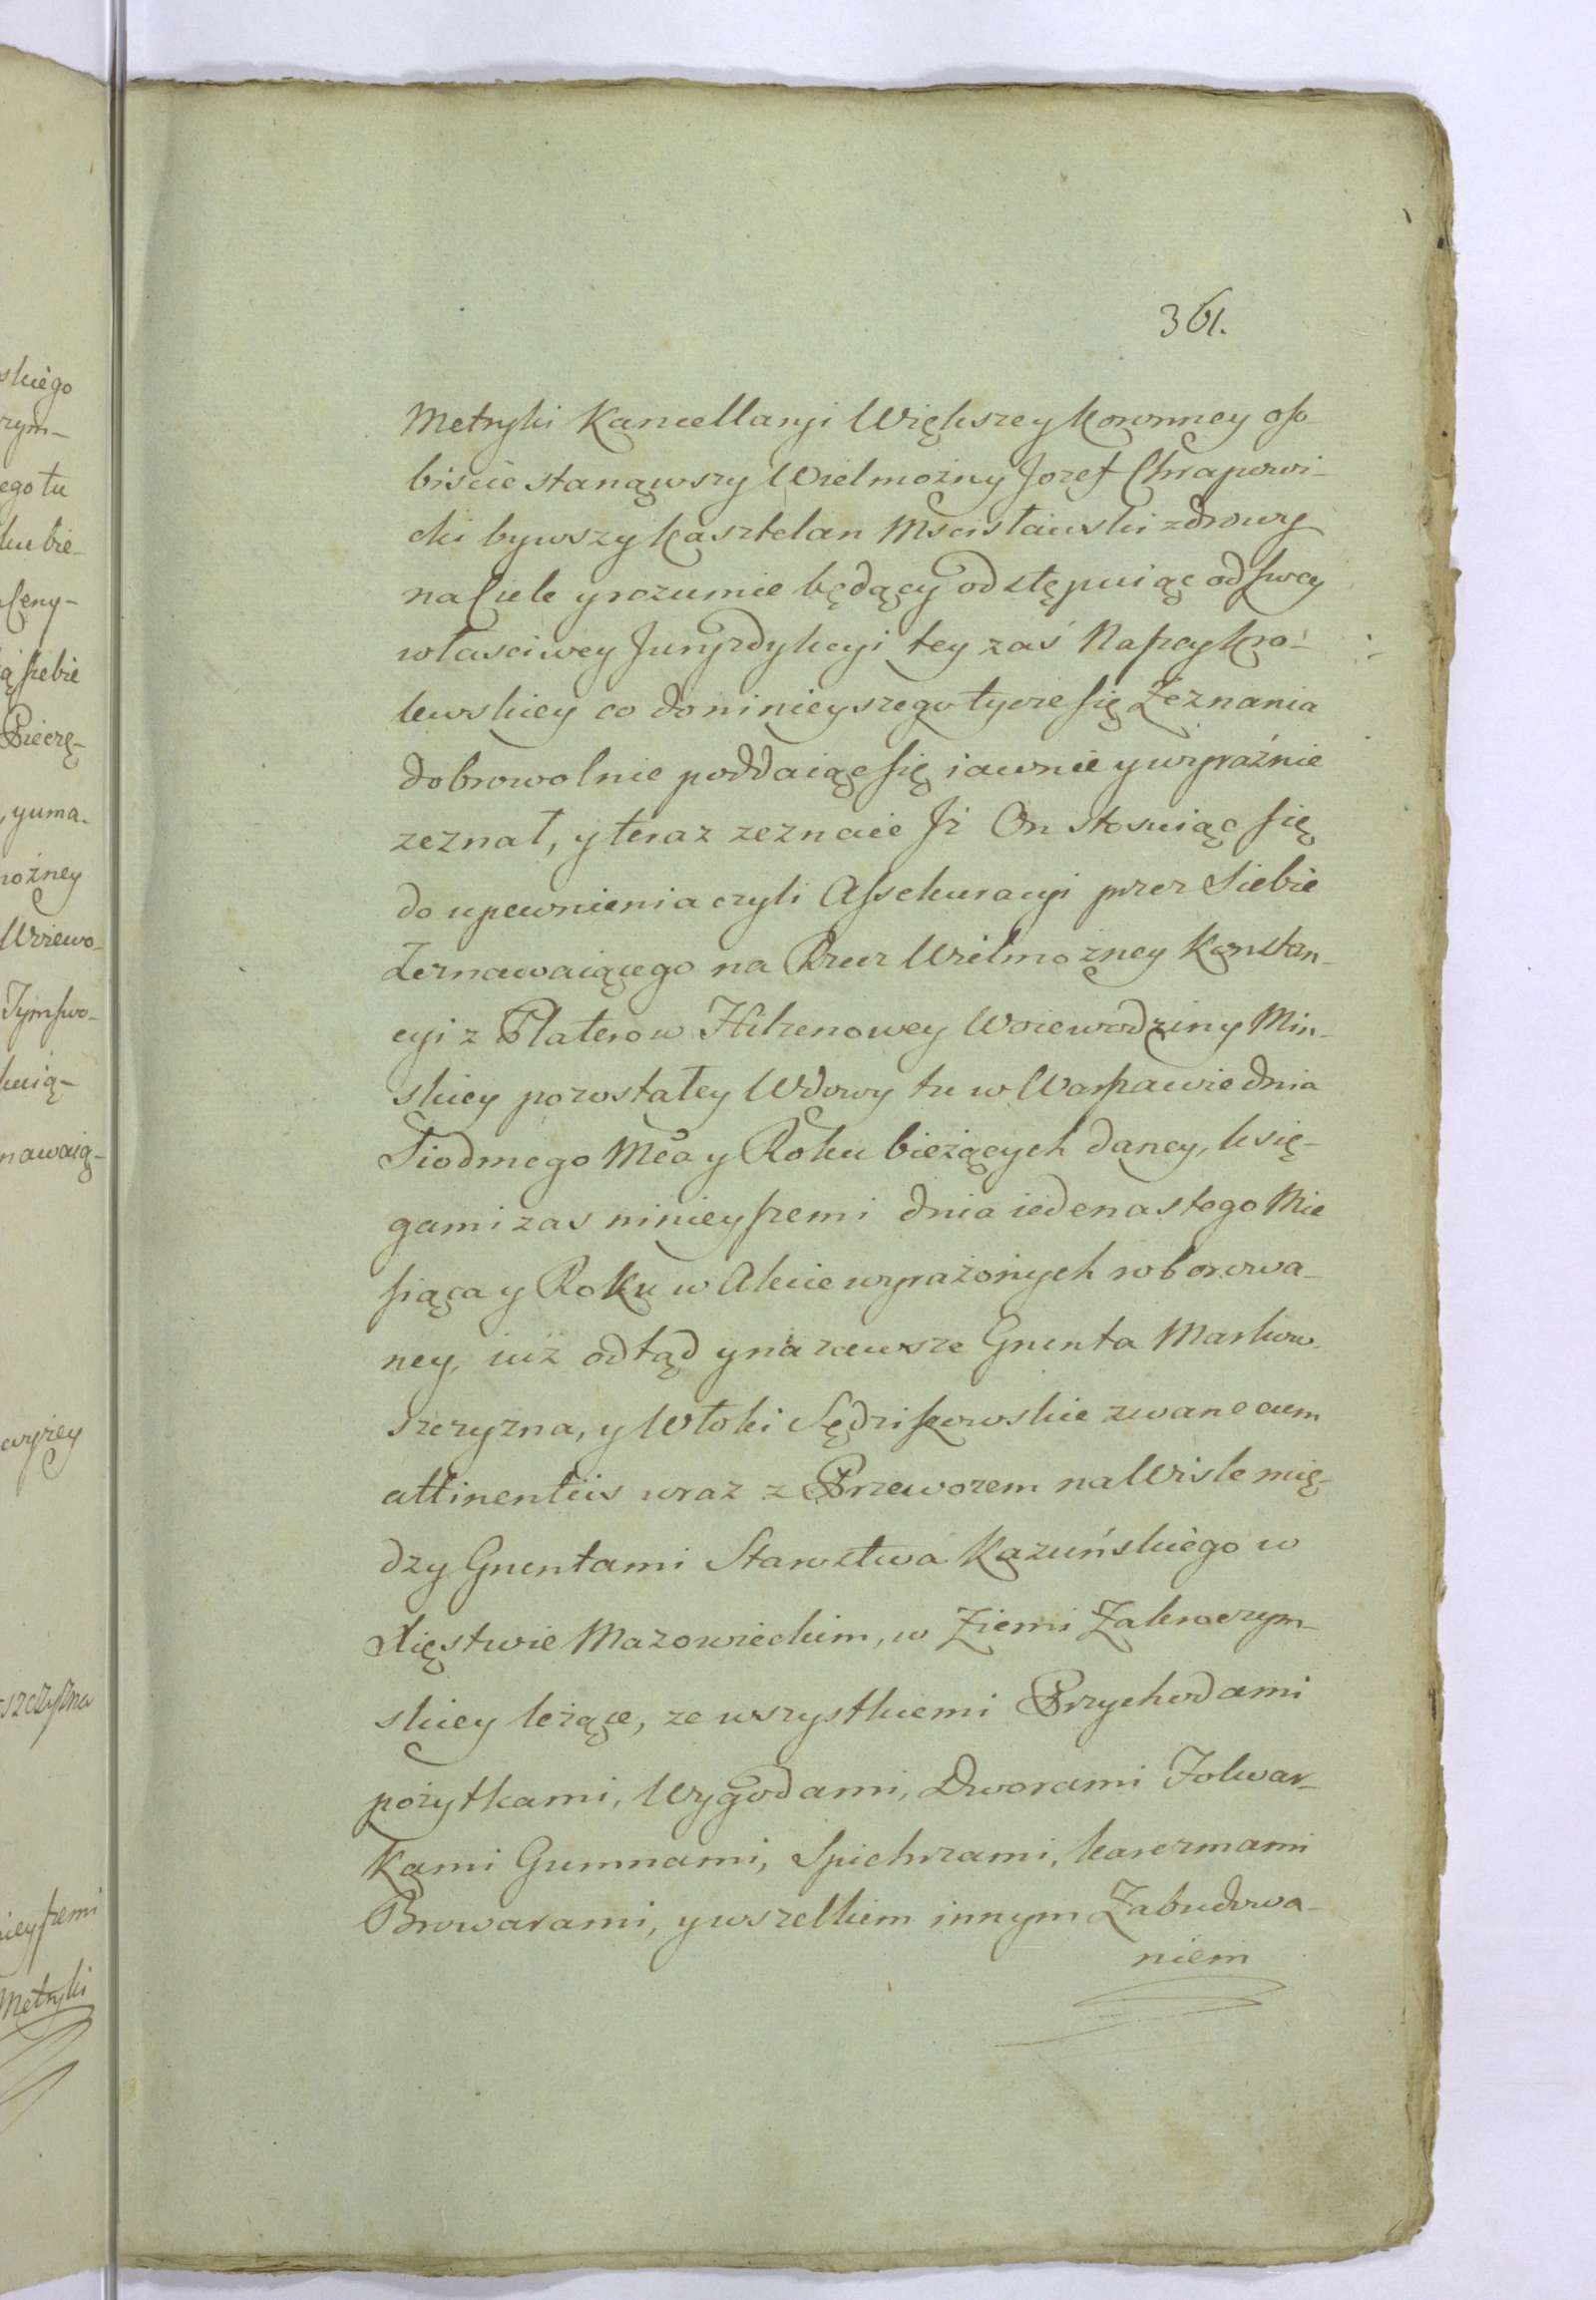 361.
Metryki Kancellaryi Większey Koronney oso
biście stanąwszy Wielmożny Jozef Chrapowi-
cki bywszy Kasztelan Mscisławski zdrowy
na Ciele y rozumie będący odstępuiąc od swey
własciwey Juryzdykcyi tey zaś Naszey Kró-
lewskiey co do ninieyszego tycze się Zeznania
dobrowolnie poddaiąc się iawnie y wyraźnie
zeznał, y teraz zeznaie Jż On stosuiąc się
do upewnienia czyli Assekuracyi przez Siebie
Zeznawaiącego na Rzecz Wielmożney Konstan-
cyi z Platerow Hilzenowey Woiewodziny Min-
skiey pozostałey Wdowy tu w Warszawie dnia
Siodmego Mca y Roku bieżących daney, księ-
gami zas ninieyszemi dnia iedenastego Mie
siąca y Roku w Akcie wyrażonych roborowa-
ney, iuż odtąd y na zawsze Grunta Markow
szczyzna, y Włoki Sędziszowskie zwane cum
attinentiis wraz z Przewozem na Wisle mię-
dzy Gruntami Starostwa Kazuńskiego w
Xięstwie Mazowieckim, w Ziemi Zakroczym-
skiey leżące, ze wszystkiemi Przychodami
pożytkami, Wygodami, Dworami Folwar-
kami Gumnami, Spichrzami, karczmami
Browarami, y wszelkiem innym Zabudowa-
niem
skiego
rzym-
ego tu
ku bie-
Ceny-
ą siebie
Pieczę-
, y uma-
nożney
Woiewo-
Tym swo-
kuią-
nawaią-
wyżey
szczyzna
ieyszemi
Metryki